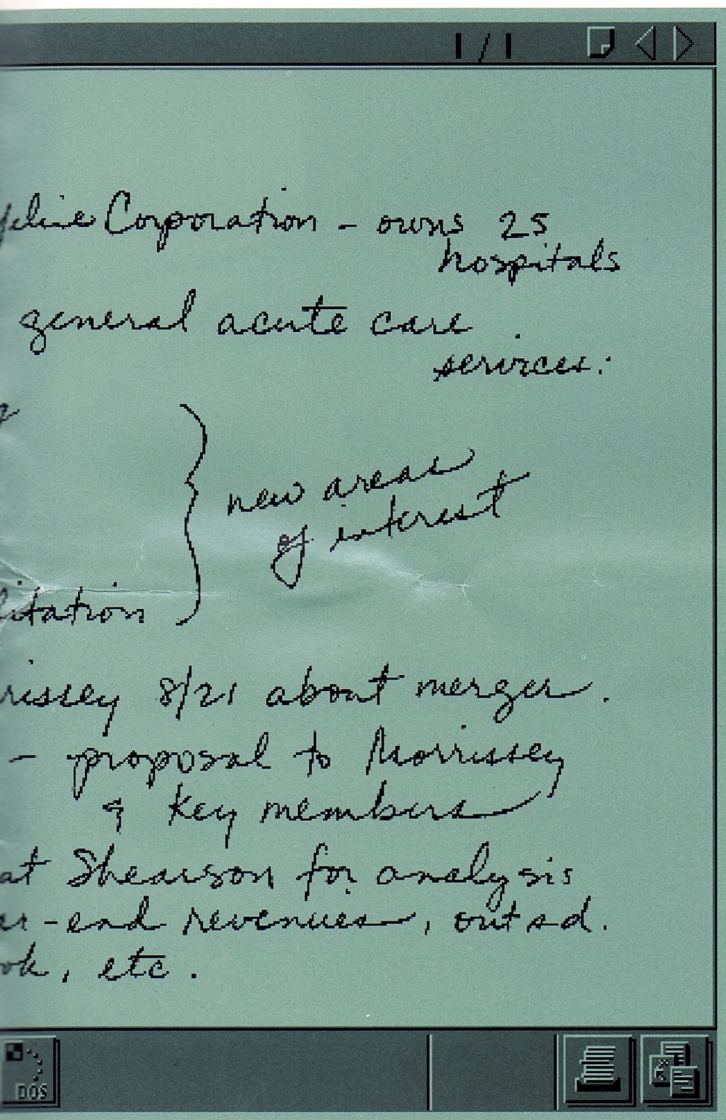 1/1
Corporation – owns 25
hospitals
general acute care
services:
new areas
of interest
litation
rissey 8/21 about merger.
– proposal to Morrissey
& key members
at Shearson for analysis
-end revenues, outsd.
ok, etc.
DOS